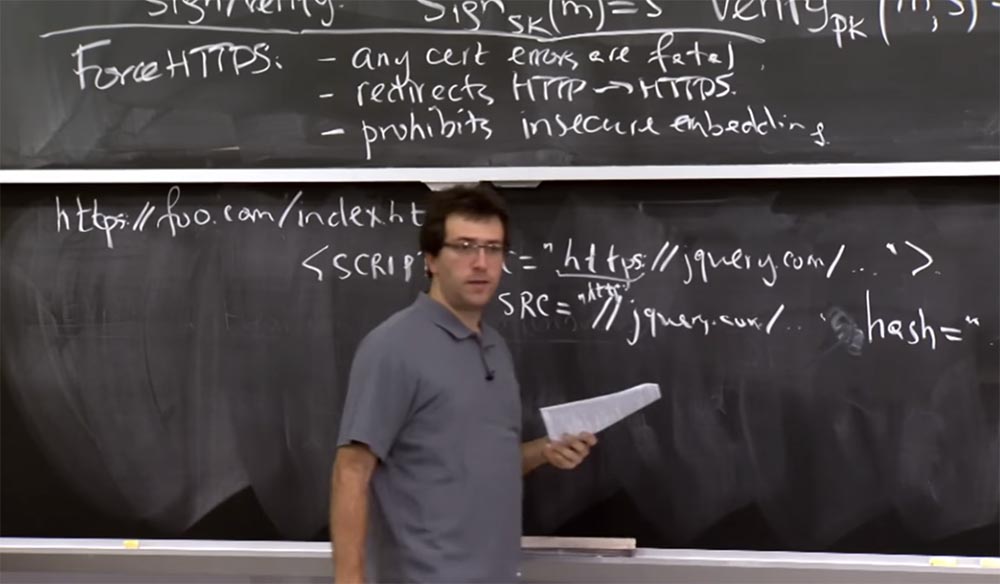 Sign/Verify: Sign_SK(m)=S Verify_PK(m,S)=
ForceHTTPS: - any cert errors are fatal.
- redirects HTTP → HTTPS.
- prohibits insecure embedding
https://foo.com/index.ht
<SCRIPT C="https://jquery.com/..."">
SRC="http //jquery.com/.. " hash="